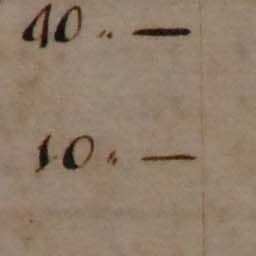 40 〃 —
10 〃 —